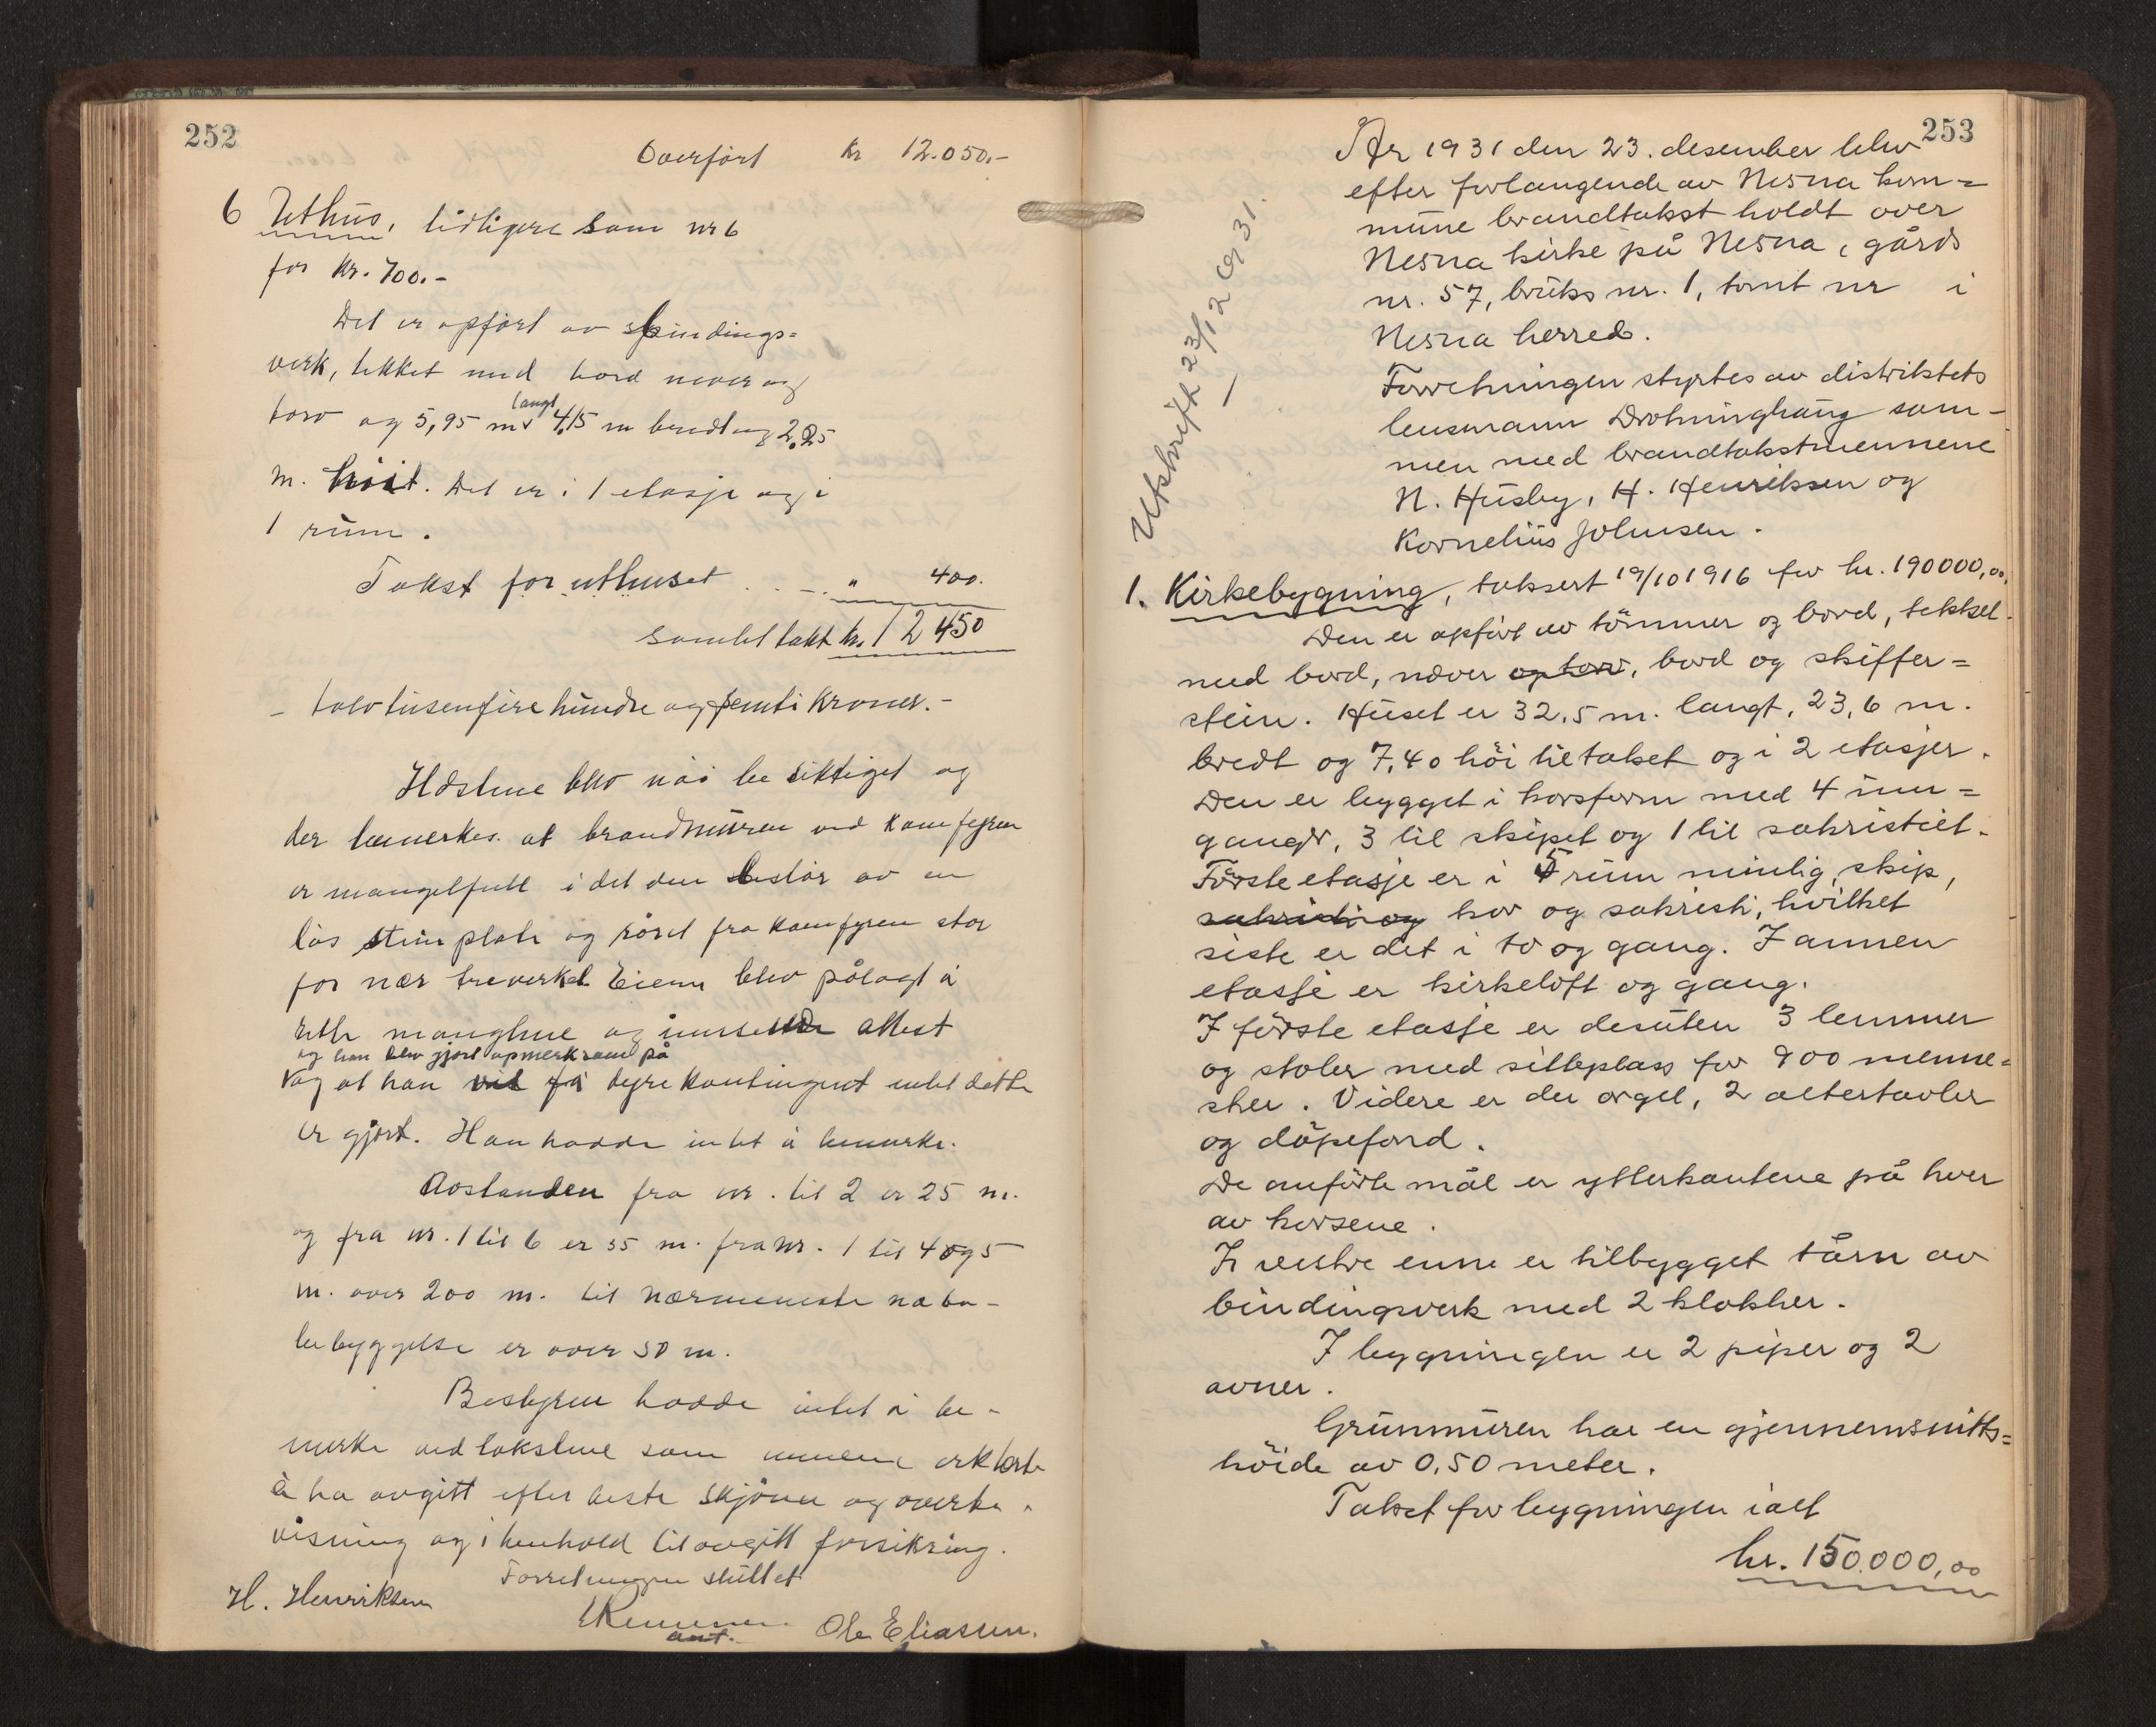 252
Overført kr 12.050.-
6 Uthus, tidligere som nr 6
for kr. 700.-
Det er opført av bindings=
verk, tekket med bord never og
torv og 5,95 m langt 4,15 m bredt og 2,25
m. høit. Det er i 1 etasje og i
1 rum.
Takst for uthuset . . - . " 400.
Samlet takt kr. 12450
- tolvtusenfirehundre og femti kroner. -
Ildstene blev nøi besiktiget og
der bemerkes at brandmuren ved komfyren
er mangelfull i det den består av en
løs stein plate og røret fra komfyren står
for nær treverket. Eieren blev pålagt å
rette manglene og innsende attest
og han blev gjort opmerksom på
og at han vil få dyre kontingent intil dette
er gjort. Han hadde intet å bemerke.
Avstanden fra nr. til 2 er 25 m.
og fra nr. 1 til 6 er 35 m. fra nr. 1 til 4 og 5
m. over 200 m. til nærmeneste nabo-
bebyggelse er over 50 m.
Bestyren hadde intet å be-
merke ved takstene som mennene erklærte
å ha avgitt efter beste skjønn og overbe-
visning og i henhold til avgitt forsikring.
Forretningen sluttet
H. Henriksen
ant. Ole Eliassen.
253
Utskrift 23/12 1931.
År 1931 den 23. desember blev
efter forlangende av Nesna kom=
mune brandtakst holdt over
Nesna kirke på Nesna, gårds
nr. 57, bruks nr. 1, tomt nr i
Nesna herred.
Forretningen styrtes av distriktets
lensmann Drotninghaug sam-
men med brandtakstmennene
N. Husby, H. Henriksen og
Kornelius Johnsen.
1. Kirkebygning, taksert 19/10 1916 for kr. 190000,00.
Den er opført av tømmer og bord, tekket
med bord, never og torv, bord og skiffer=
stein. Huset er 32,5 m. langt, 23,6 m.
bredt og 7,40 høi til taket og i 2 etasjer.
Den er bygget i korsform med 4 inn=
ganger, 3 til skipet og 1 til sakristiet.
Første etasje er i 5 rum nemlig, skip,
sakristi og kor og sakristi, hvilket
siste er det i to og gang. I annen
etasje er kirkeloft og gang.
I første etasje er desuten 3 lemmer
og stoler med sitteplass for 900 menne=
sker. Videre er der orgel, 2 altertavler
og døpefond.
De anførte mål er ytterkantene på hver
av korsene.
I vestre enne er tilbygget tårn av
bindingsverk med 2 klokker.
I bygningen er 2 piper og 2
ovner.
Grunmuren har en gjennemsnitts=
høide av 0,50 meter.
Takst for bygningen ialt
kr. 150.000,00